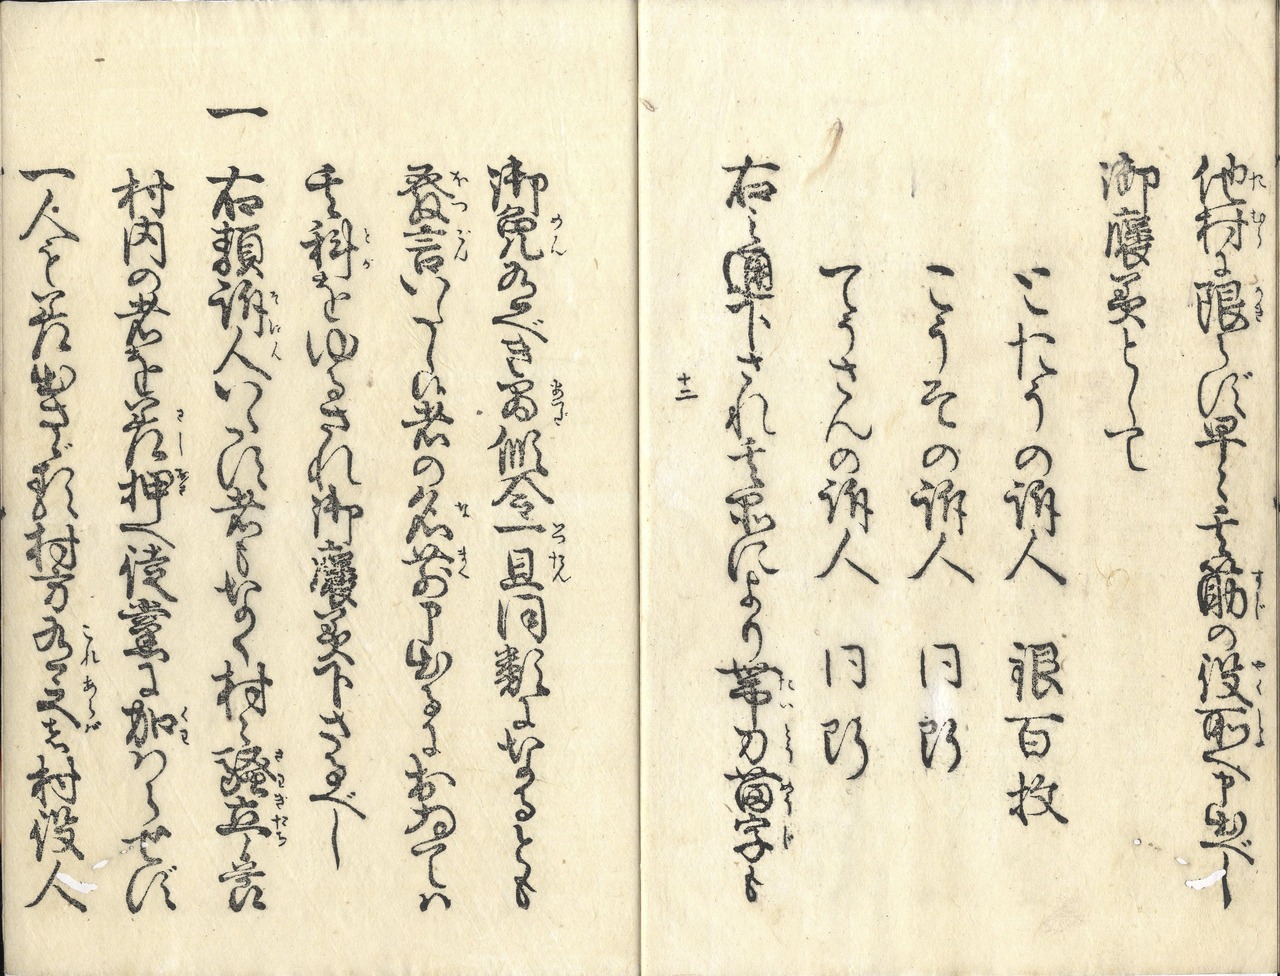 他村に限らず早々其筋の役所へ申出べし
御褒美として
ととうの訴人 銀百枚
こうその訴人 同断
てうさんの訴人 同断
右之通下され其品により帯刀苗字も
十二
御免有べき間仮令一旦同類になるとも
発言いたし候者の名前申出るにおゐてハ
其科をゆるされ御褒美下さるべし
一 右類訴人いたす者もなく村々騒立候節
村内の者を差押へ徒党に加ハらせず
一人も差出さゞる村方有之ハ村役人